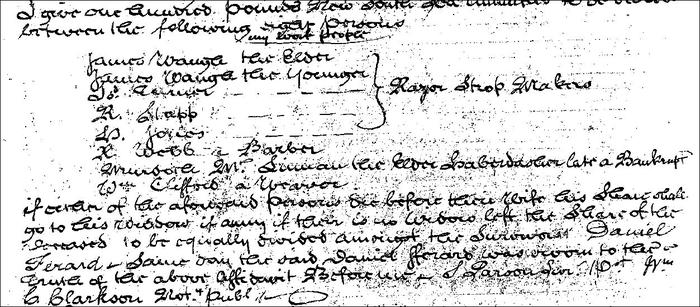 I give one hundred Pounds New South Sea annuities to be divided
between the following eight Persons
my work people
James Waugh the Elder
James Waugh the Younger
Jos Turner
R. Stapp
D. Jones
} Razor Strop Makers
R. Webb a Barber
Murdoch Mc the Elder Haberdasher late a Bankrupt
Wm Clifford a Weaver
if either of the aforesaid Persons die before their Wife his Share shall
go to his Widow if any if their is no Widow left the Share of the
Deceased to be equally divided amongst the Survivors Daniel
Ferard Same day the said Daniel Fferard was sworn to the
truth of the above Affidavit Before me
C Clarkson Not. Publ